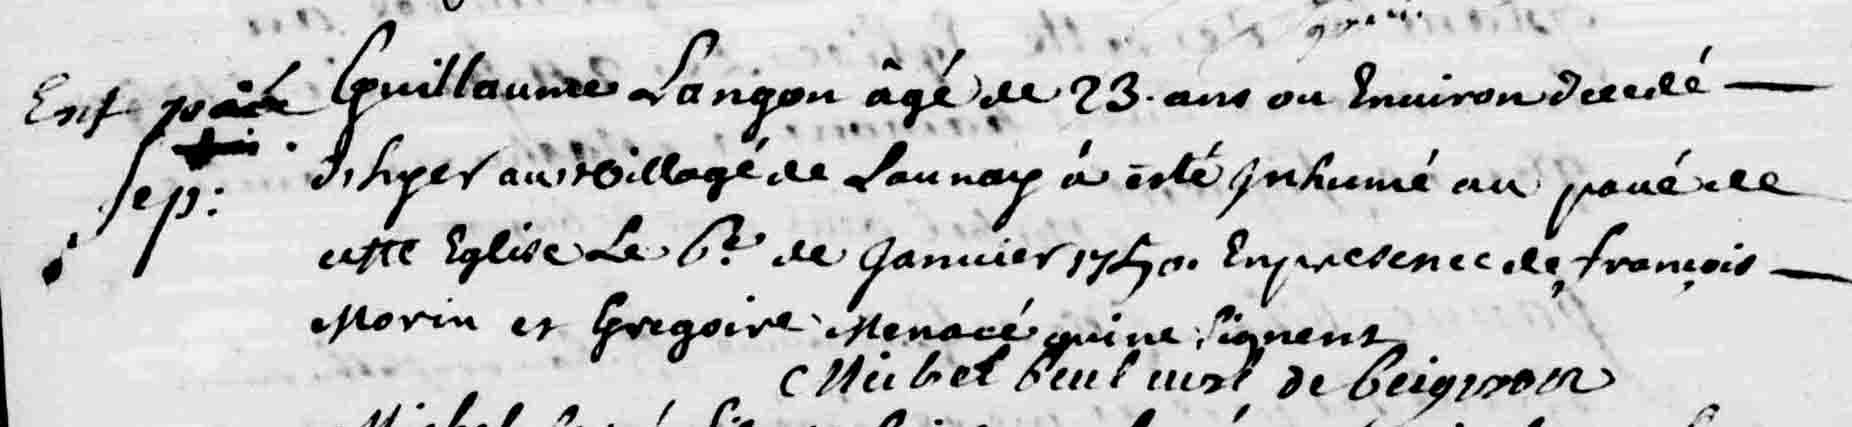 Guillaume Langon âgé de 23. ans ou Environ decedé
d'hyer au village de Launay a esté Inhumé au pavé de
cette Eglise Le 6e. de Janvier 1750. En presence de françois
Morin et Gregoire Menacé qui ne signent
de beignon
Sep: